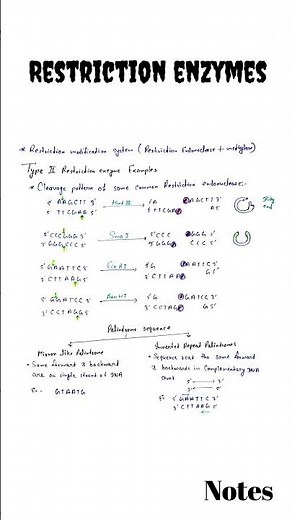 RESTRICTION ENZYMES
* Restriction modification system (Restriction Endonuclease + methylase)
Type II Restriction enzyme Examples
* Cleavage pattern of some common Restriction endonuclease:-
5' AAGCTT 3' Hind III 5'A AGCTT 3'
3' TTCGAA 5' 3' TTCGA A 5'
Sticky end
5' CCCGGG 3' Sma I 5' CCC GGG 3'
3' GGGCCC 5' 3' GGG CCC 5'
5' GAATTC 3' EcoRI 5'G AATTC 3'
3' CTTAAG 5' 3' CTTAA G 5'
5' GGATCC 3' BamHI 5'G GATCC 3'
3' CCTAGG 5' 3' CCTAG G 5'
Palindrome sequence
Mirror like Palindrome
• Same forward & backward
are on single strand of DNA
Ex- GTAATG
Inverted Repeat Palindromes
• Sequence read the same forward
& backwards in Complementary DNA
strand
5' 3'
3' 5'
Ex 5' GAATTC 3'
3' CTTAAG 5'
Notes